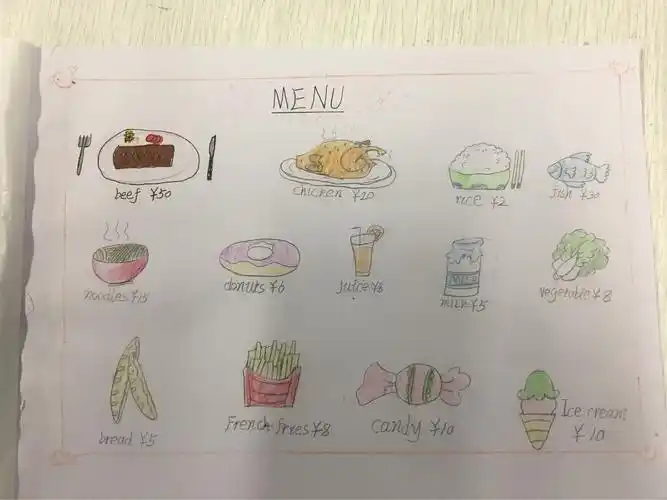 MENU
beef ¥50
chicken ¥20
rice ¥2
fish ¥30
noodles ¥15
donuts ¥6
juice ¥6
MILK
milk ¥5
vegetable ¥8
bread ¥5
French fries ¥8
candy ¥10
Ice cream
¥10